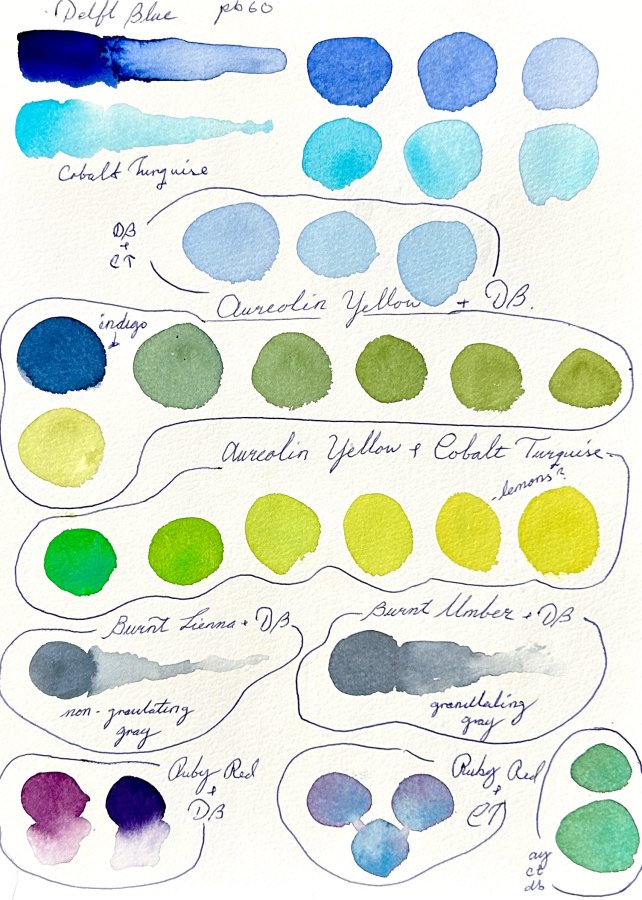 Delft Blue pb60
Cobalt Turquise
DB
+
CT
Aureolin Yellow + DB.
indigo
Aureolin Yellow + Cobalt Turquise
lemons?
Burnt Sienna + DB
Burnt Umber + DB
non-granlating
gray
granullating
gray
Ruby Red
+
DB
Ruby Red
+
CT
ay
ct
db